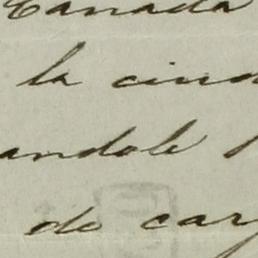 Canada
la ciud
andole
de car